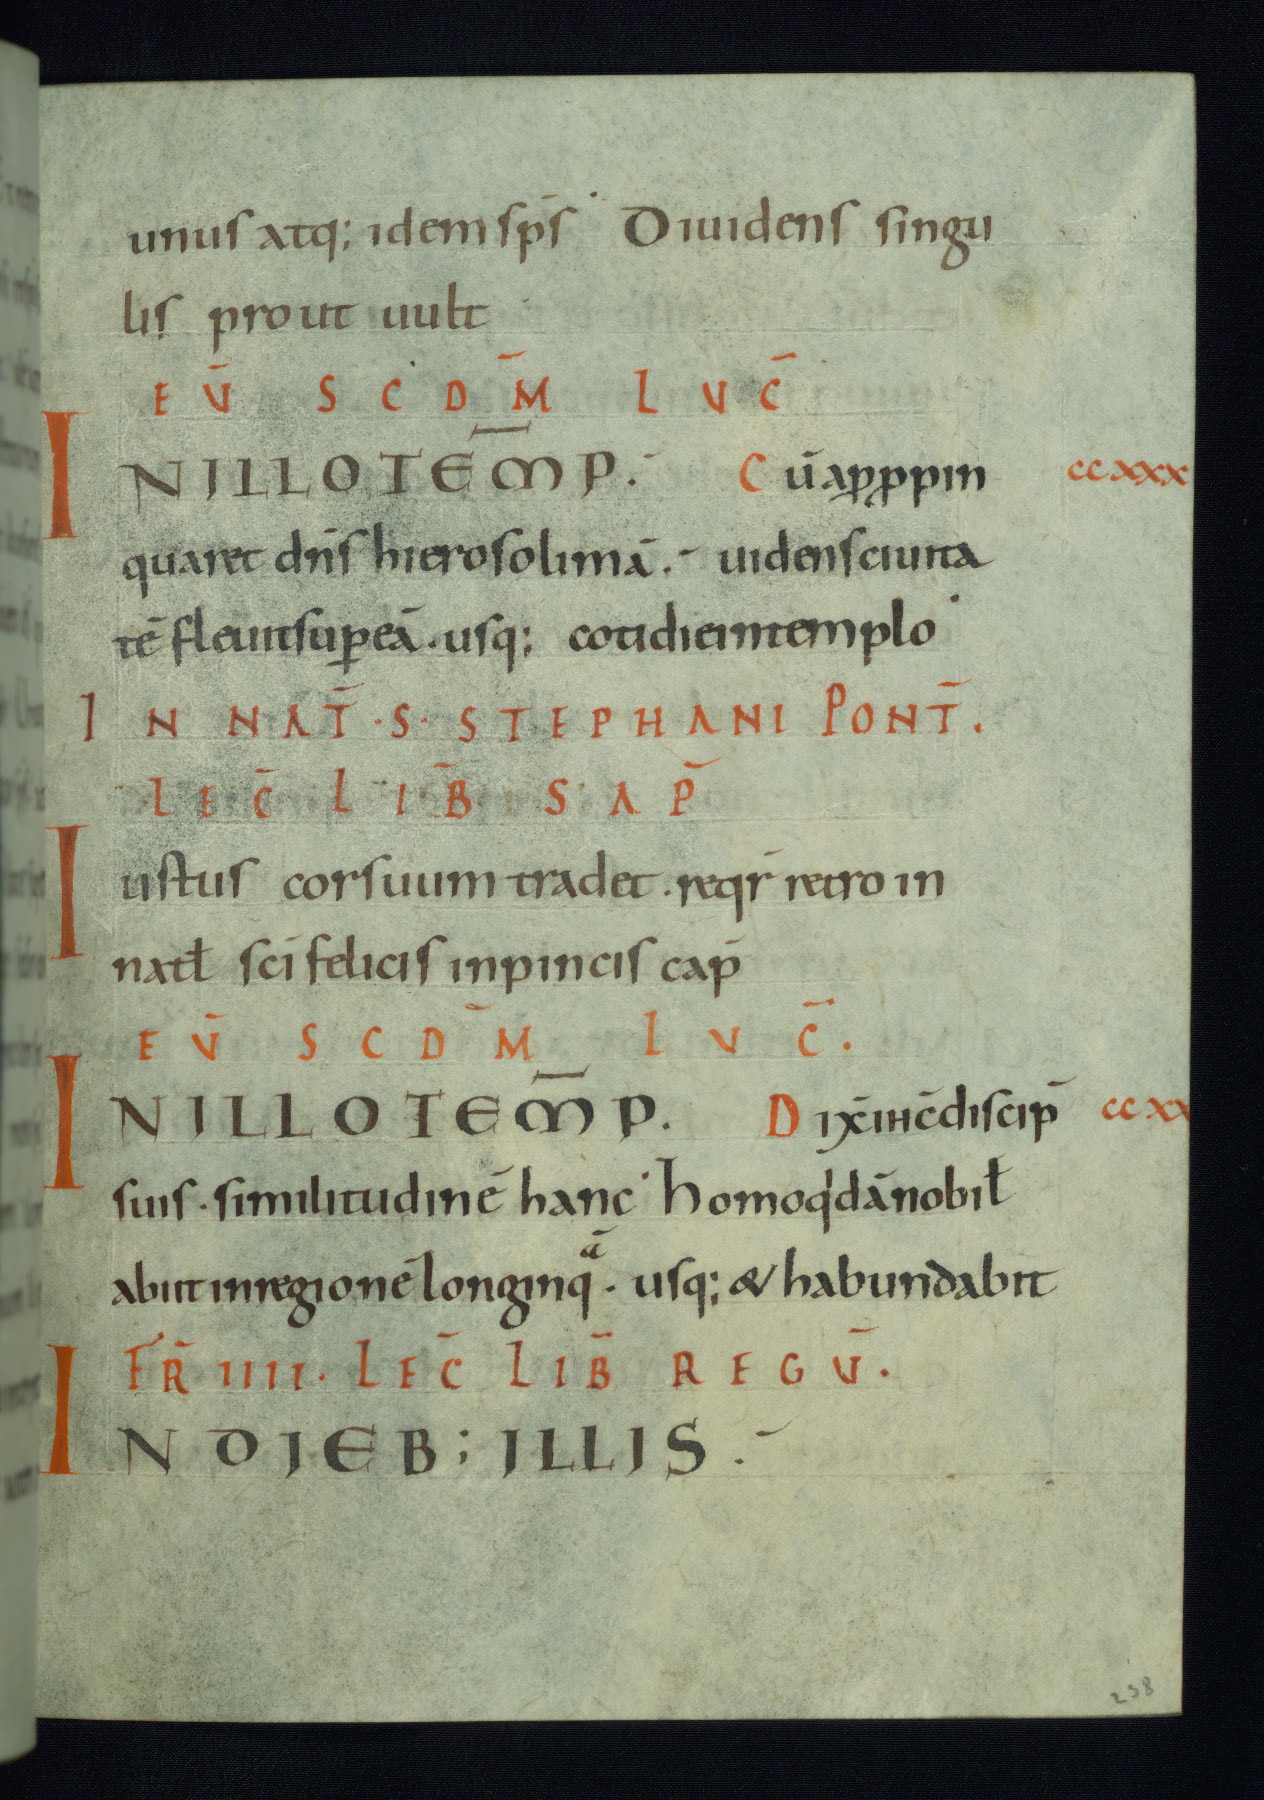 unus atq; idem sp̄s Diuidens singu
lis prout uult
EŪ SCDM̄ LUC̄
INILLOTEM̄P. Cūap̱ꝓpin ccxxx
quaret dn̄s hierosolimā. uidensciuita
tē fleuitsuꝑeā. usq; cotidieintemplo
IN NAT̄ ·S· STEPHANI PONT̄.
LEC̄ LIB̄ SAP̄
Iustus corsuum tradet. reqr̄ retro in
natł sc̄i felicis inpincis cap̄
EŪ SCDM̄ LUC̄.
INILLOTEM̄P. Dix̄ ih̄c̄discip̄ ccxx
suis. similitudinē hanc homoq'dānobił
abiitinregionē longinqͣ̄. usq; & habundabit
FR̄ IIII. LEC̄ LIB̄ REGŪ.
INDIEB; ILLIS.
238